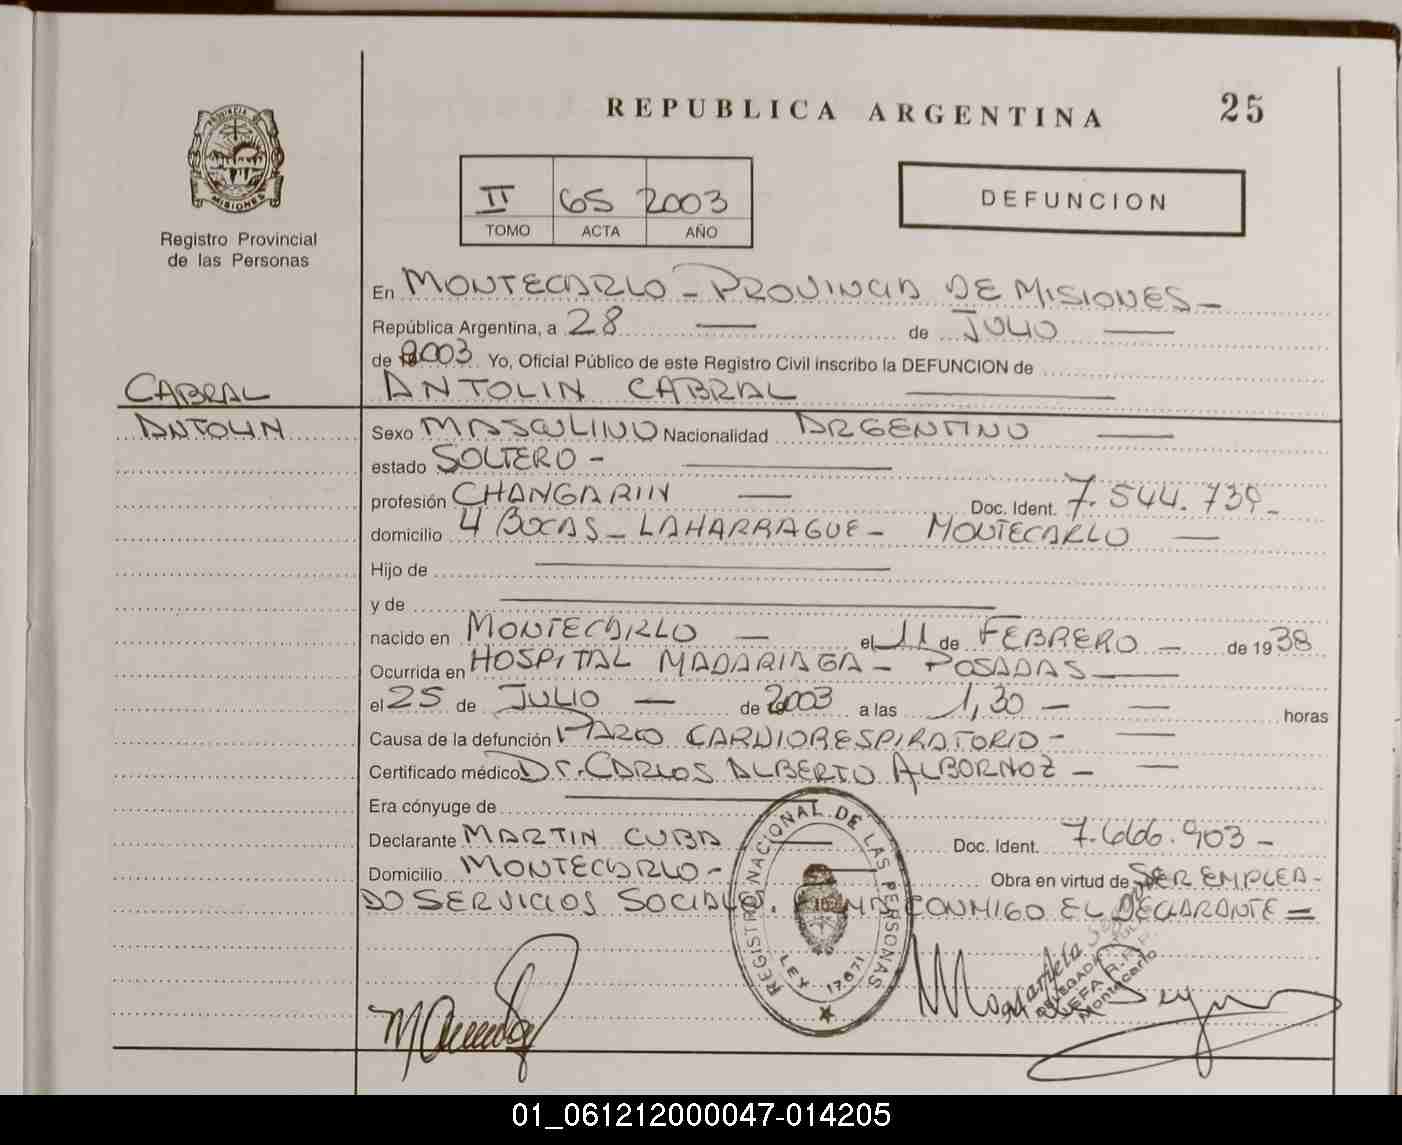 REPUBLICA ARGENTINA
25
PROVINCIA DE
MISIONES
Registro Provincial
de las Personas
II 65 2003
TOMO ACTA AÑO
DEFUNCION
En MONTECARLO - PROVINCIA DE MISIONES -
República Argentina, a 28 — de JULIO —
de 2003. Yo, Oficial Público de este Registro Civil inscribo la DEFUNCION de
CABRAL
ANTOLIN
ANTOLIN CABRAL —
Sexo MASCULINO Nacionalidad ARGENTINO —
estado SOLTERO - —
profesión CHANGARIN — Doc. Ident. 7.544.739 -
domicilio 4 BOCAS - LAHARRAGUE - MONTECARLO —
Hijo de —
y de —
nacido en MONTECARLO — el 11 de FEBRERO - de 1938
Ocurrida en HOSPITAL MADARIAGA - POSADAS —
el 25 de JULIO — de 2003 a las 1,30 - — horas
Causa de la defunción PARO CARDIORESPIRATORIO - —
Certificado médico Dr. CARLOS ALBERTO ALBORNOZ - —
Era cónyuge de —
Declarante MARTIN CUBA — Doc. Ident. 7.666.903 -
Domicilio MONTECARLO - — Obra en virtud de SER EMPLEA-
DO SERVICIOS SOCIALES. FIRMA CONMIGO EL DECLARANTE =
REGISTRO NACIONAL DE LAS PERSONAS
LEY 17.671
Montecarlo
01_061212000047-014205